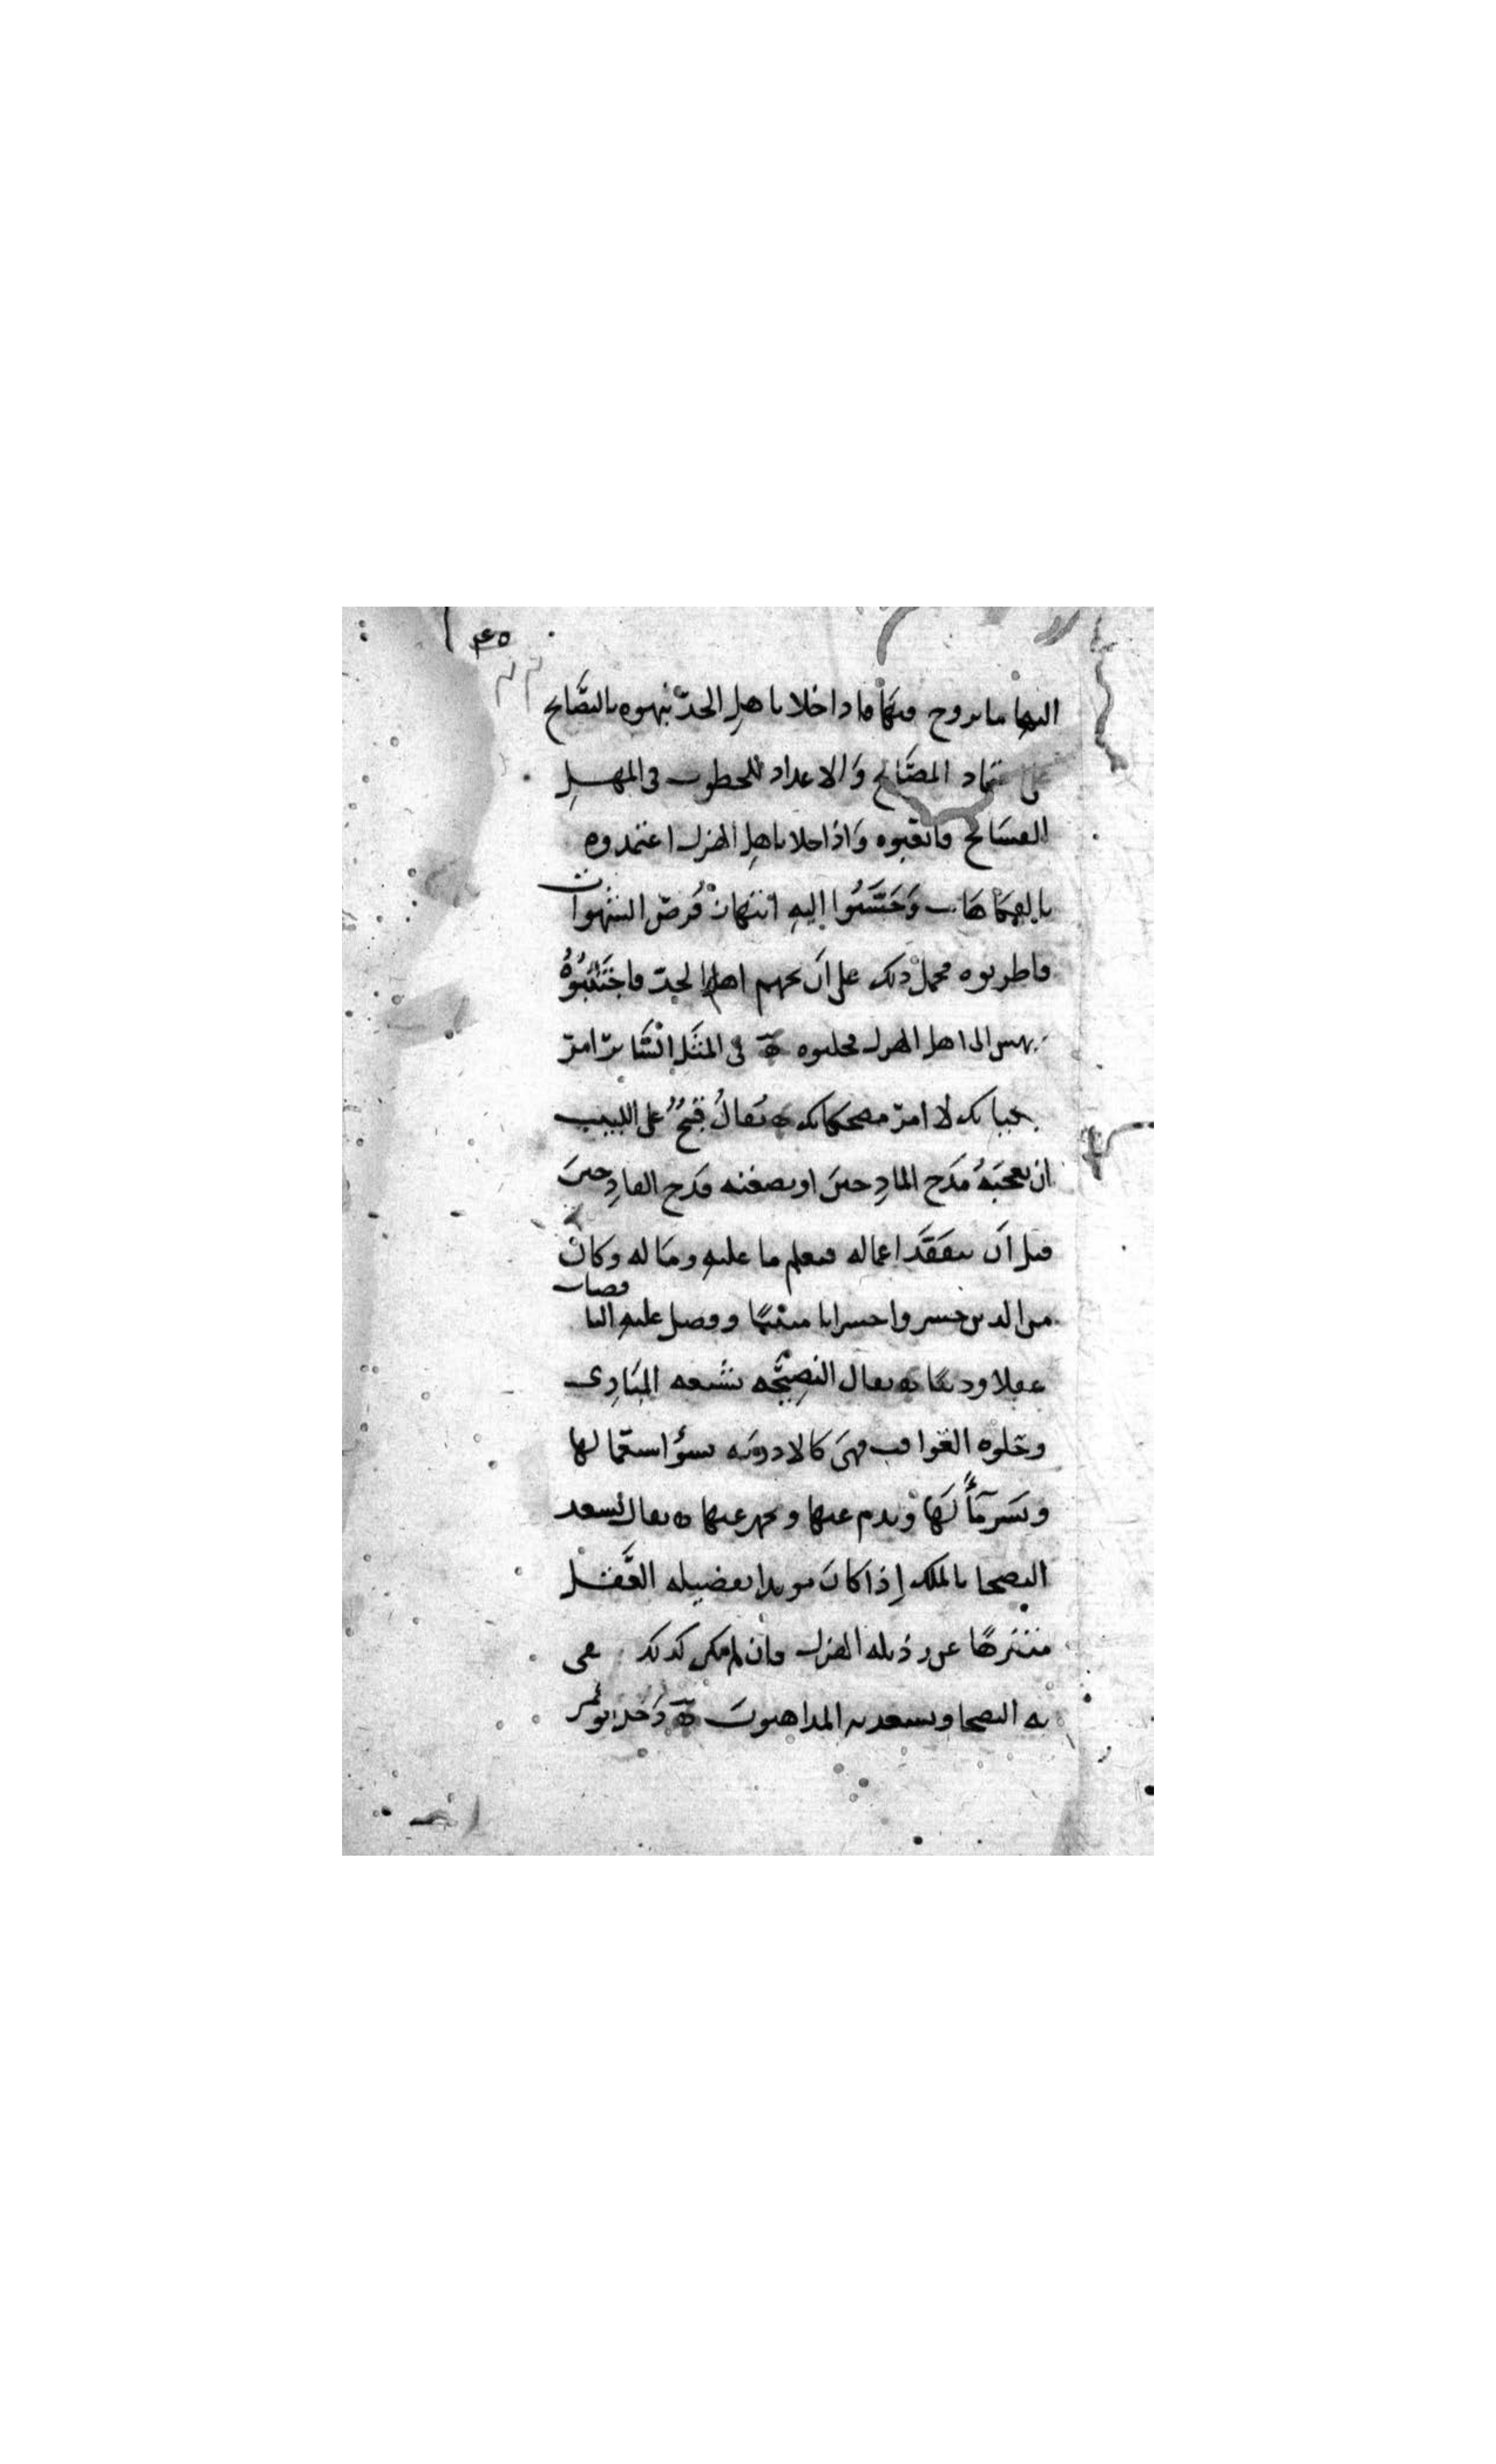 ٤٥
اليهما ما يروح منهما فاذا خلا باهلِ الجدّ نبهوه بالنصَّايح
على المصَالح وَالاعداد للخطوب فى المهــلِ
فاتعبوه وَاذا خلا باهلِ الهزل اعتمدوه
بالفكاهات وَحَسَّنُوا اليهِ انتهازْ فُرصّ الشهوات
فاطربوه فحمل ذلك على اَن يتهم اهل الجدّ فاجْتَنَبُوْهُ
الى اهل الهزل فجلبوه فى المثَل انْسَا برّ امرّ
مبكياتك لا امرّ مضحكاتك يُقالُ قبْحٌ على اللبيب
ان يعجبَهُ مَدَح المادِحينَ او يضغنه قَدَح القادِحينَ
قبل اَن يتفقَّدَ اعماله فيعلم ما عليهِ ومَا له وكانْ
من الذين خسروا خسرانا مبينًا ووصل عليهِ النا قصان
عقلا ودينًا يقال النصِيحَة بشعه المبَادِى
وحلوه العَواقب فهىَ كالادويَه بسؤ استعمالها
ويَسُر مَأٓلَهَا ويذم عنها ويحمد عنها يقال يسعد
النصحا بالملك إذا كانَ مويدا بفضيله العَقــل
متنزهًا عن رذيله الهزل وان لم يكن كذلك
به النصحا ويسعد به المداهنونَ